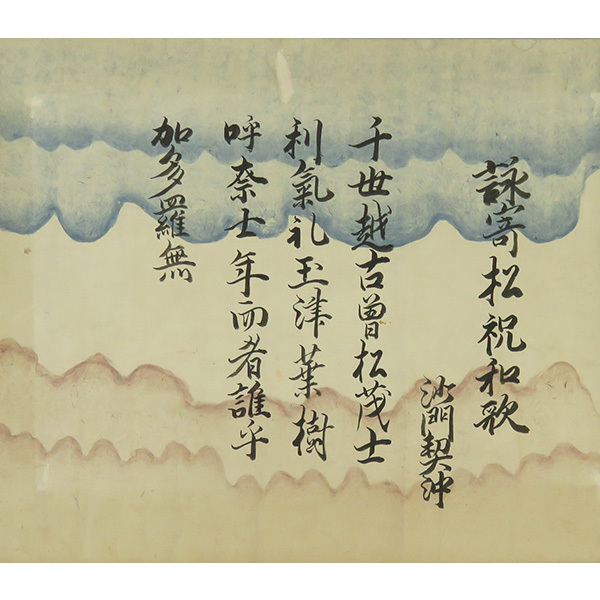 詠寄松祝和歌
沙門契沖
千世越古曽松茂士
利氣礼玉津葉樹
呼奈士年而者誰乎
加多羅無